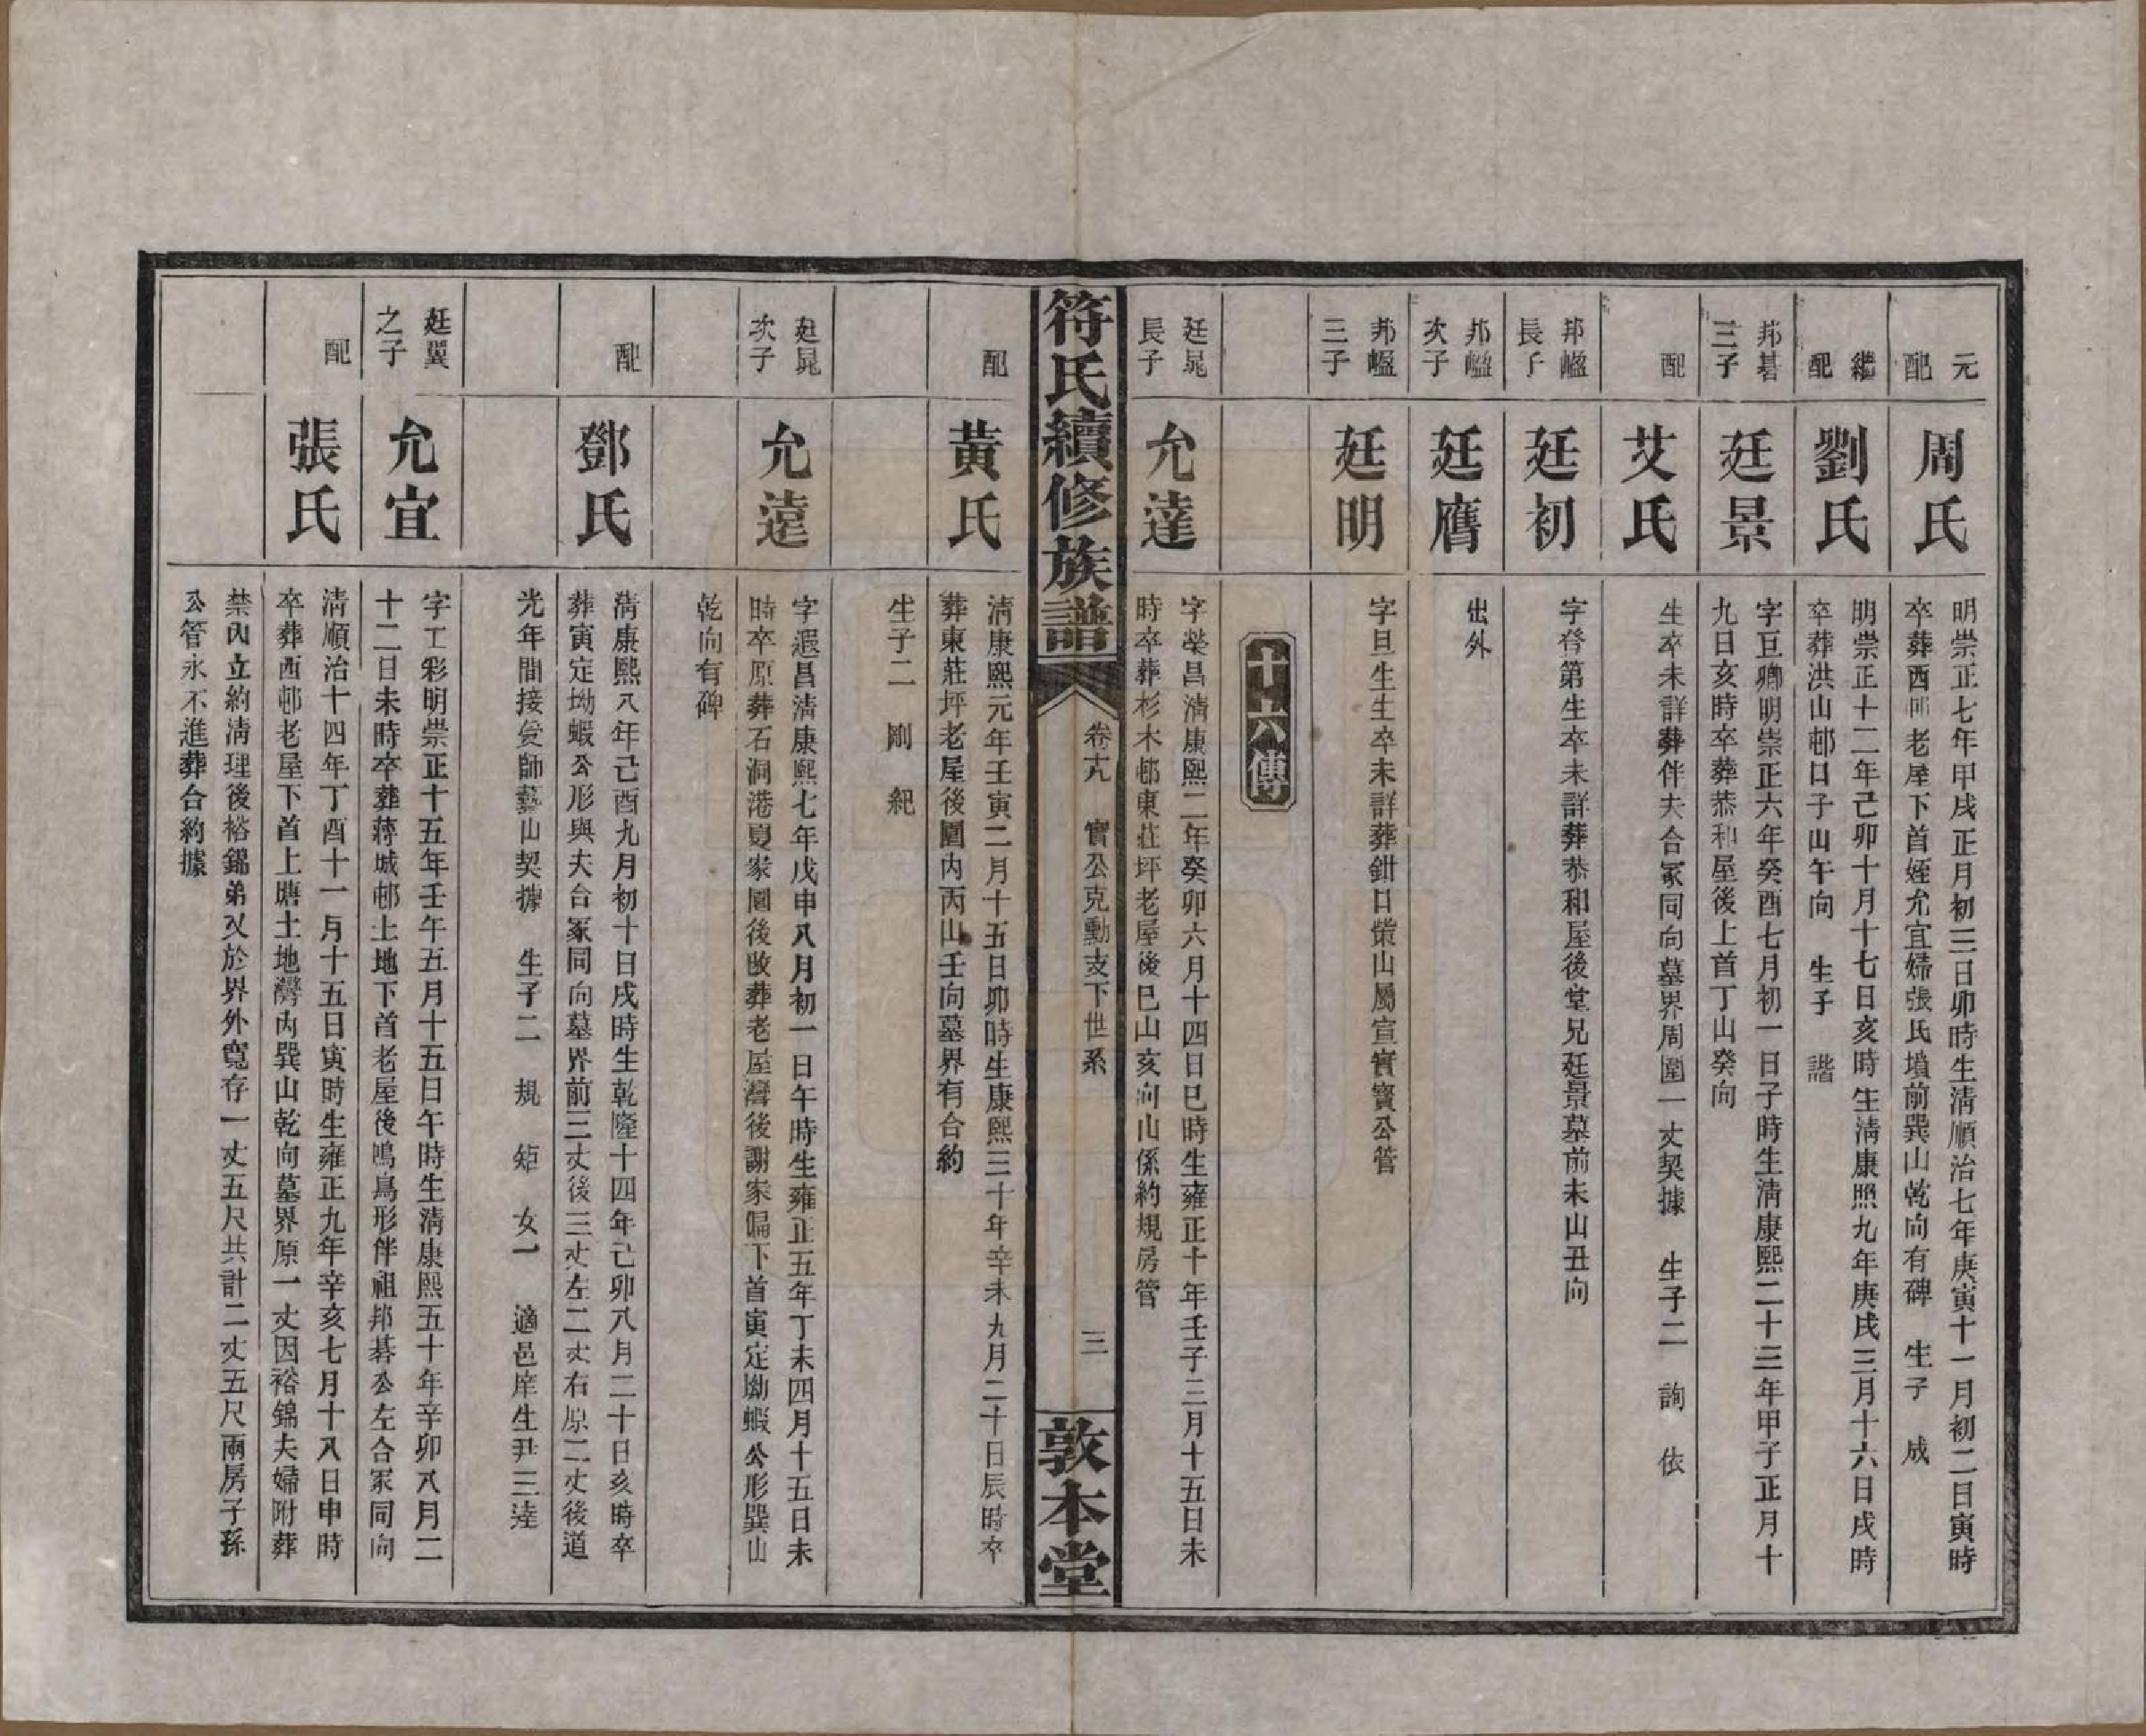 元配
周氏
明崇正七年甲戌正月初三日卯時生清順治七年庚寅十一月初二日寅時
卒葬西邨老屋下首姪允宜婦張氏墳前巽山乾向有碑　生子　成
繼配
劉氏
明崇正十二年己卯十月十七日亥時生清康熙九年庚戌三月十六日戌時
卒葬洪山邨口子山午向　生子　諧
邦碁三子
廷景
字亘卿明崇正六年癸酉七月初一日子時生清康熙二十三年甲子正月十
九日亥時卒葬恭和屋後上首丁山癸向
配
艾氏
生卒未詳葬伴夫合冢同向墓界周圍一丈契據　生子二　詢　依
邦㟵長子
廷初
字登第生卒未詳葬恭和屋後堂兄廷景墓前未山丑向
邦㟵次子
廷膺
出外
邦㟵三子
廷明
字旦生生卒未詳葬鉗口柴山屬宣實寳公管
十六傳
廷晁長子
允達
字榮昌清康熙二年癸卯六月十四日巳時生雍正十年壬子三月十五日未
時卒葬杉木邨東莊坪老屋後巳山亥向山係約規房管
符氏續修族譜
卷十九　實公克勳支下世系
三
敦本堂
配
黃氏
清康熙元年壬寅二月十五日卯時生康熙三十年辛未九月二十日辰時卒
葬東莊坪老屋後園內丙山壬向墓界有合約
生子二　剛　紀
廷晁次子
允遠
字遐昌清康熙七年戊申八月初一日午時生雍正五年丁未四月十五日未
時卒原葬石洞港夏家園後改葬老屋灣後謝家偏下首寅定坳蝦公形巽山
乾向有碑
配
鄧氏
清康熙八年己酉九月初十日戌時生乾隆十四年己卯八月二十日亥時卒
葬寅定坳蝦公形與夫合冢同向墓界前三丈後三丈左二丈右原二丈後道
光年間接受師藝山契據　生子二　規　矩　女一　適邑庠生尹三逵
廷翼之子
允宜
字工彩明崇正十五年壬午五月十五日午時生清康熙五十年辛卯八月二
十二日未時卒葬蔣城邨土地下首老屋後鳴鳥形伴祖邦碁公左合冢同向
配
張氏
清順治十四年丁酉十一月十五日寅時生雍正九年辛亥七月十八日申時
卒葬西邨老屋下首上塘土地灣內巽山乾向墓界原一丈因裕錦夫婦附葬
禁內立約清理後裕錫弟又於界外寬存一丈五尺共計二丈五尺兩房子孫
公管永不進葬合約據